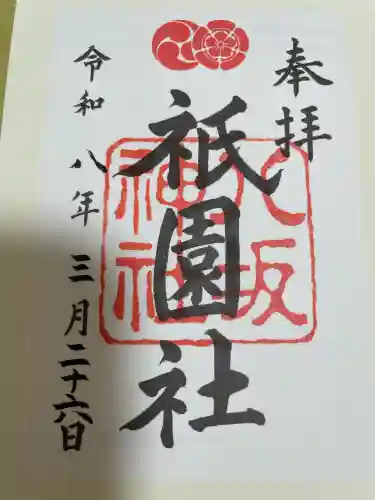 奉拝
八坂
神社
祇園社
令和八年三月二十六日